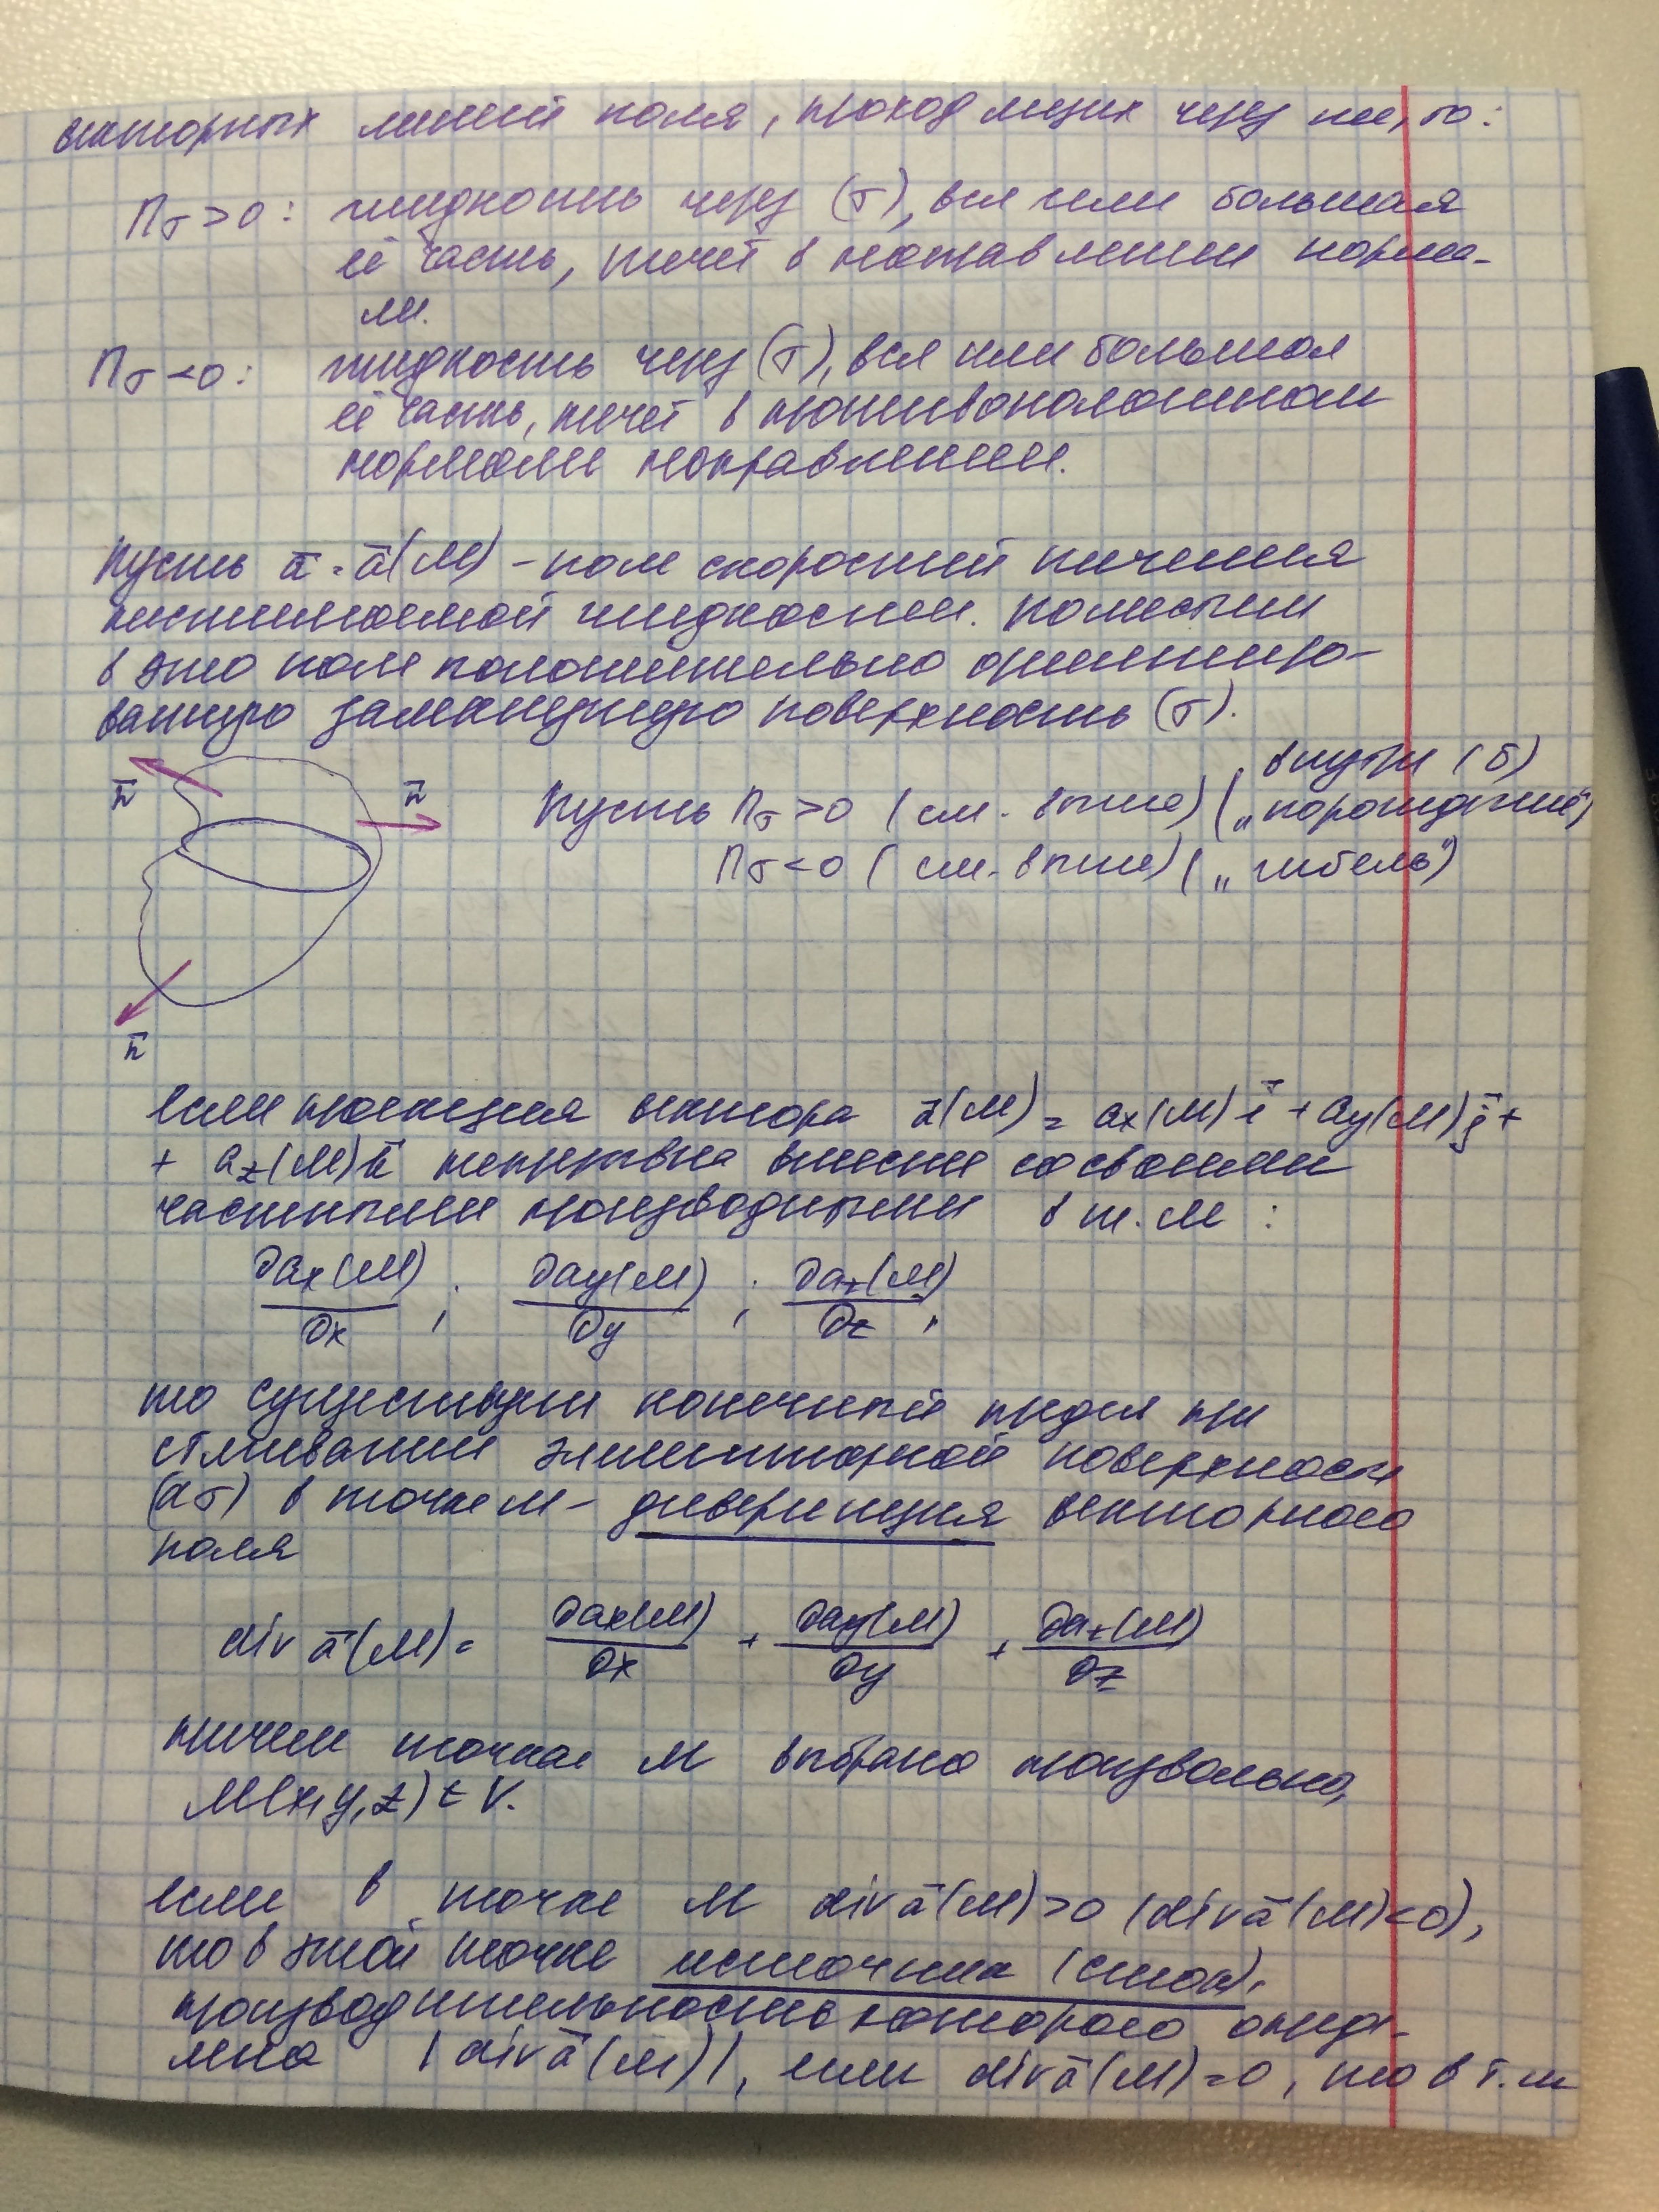 векторных линий поля, проходящих через нее, то:
Пσ > 0: жидкость через (σ), вся или большая
её часть, течёт в направлении норма-
ли.
Пσ < 0: жидкость через (σ), вся или большая
её часть, течёт в противоположном
нормали направлении.
Пусть ā = ā(M) – поле скоростей течения
несжимаемой жидкости. Поместим
в это поле положительно ориентиро-
ванную замкнутую поверхность (σ).
внутри (σ)
n̄ n̄ Пусть Пσ > 0 (см. выше) („порождение")
Пσ < 0 (см. выше) („гибель")
n̄
Если проекция вектора ā(M) = ax(M) i̅ + ay(M) j̅ +
+ az(M) k̅ непрерывна вместе со своими
частными производными в т. M :
∂ax(M)/∂x ; ∂ay(M)/∂y ; ∂az(M)/∂z ,
то существует конечный предел при
стягивании элементарной поверхности
(dσ) в точке M – дивергенция векторного
поля
div ā(M) = ∂ax(M)/∂x + ∂ay(M)/∂y + ∂az(M)/∂z
причем точка M выбрана произвольно,
M(x, y, z) ∈ V.
Если в точке M div ā(M) > 0 (div ā(M) < 0),
то в этой точке источник (сток),
производительность которого опреде-
лена |div ā(M)|, если div ā(M) = 0, то в т. M